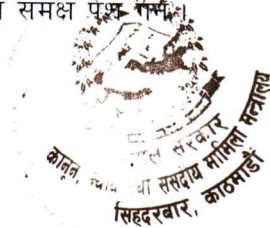 समक्ष पेश गर्ने ।
नेपाल सरकार
कानून, न्याय तथा संसदीय मामिला मन्त्रालय
सिंहदरबार, काठमाडौं